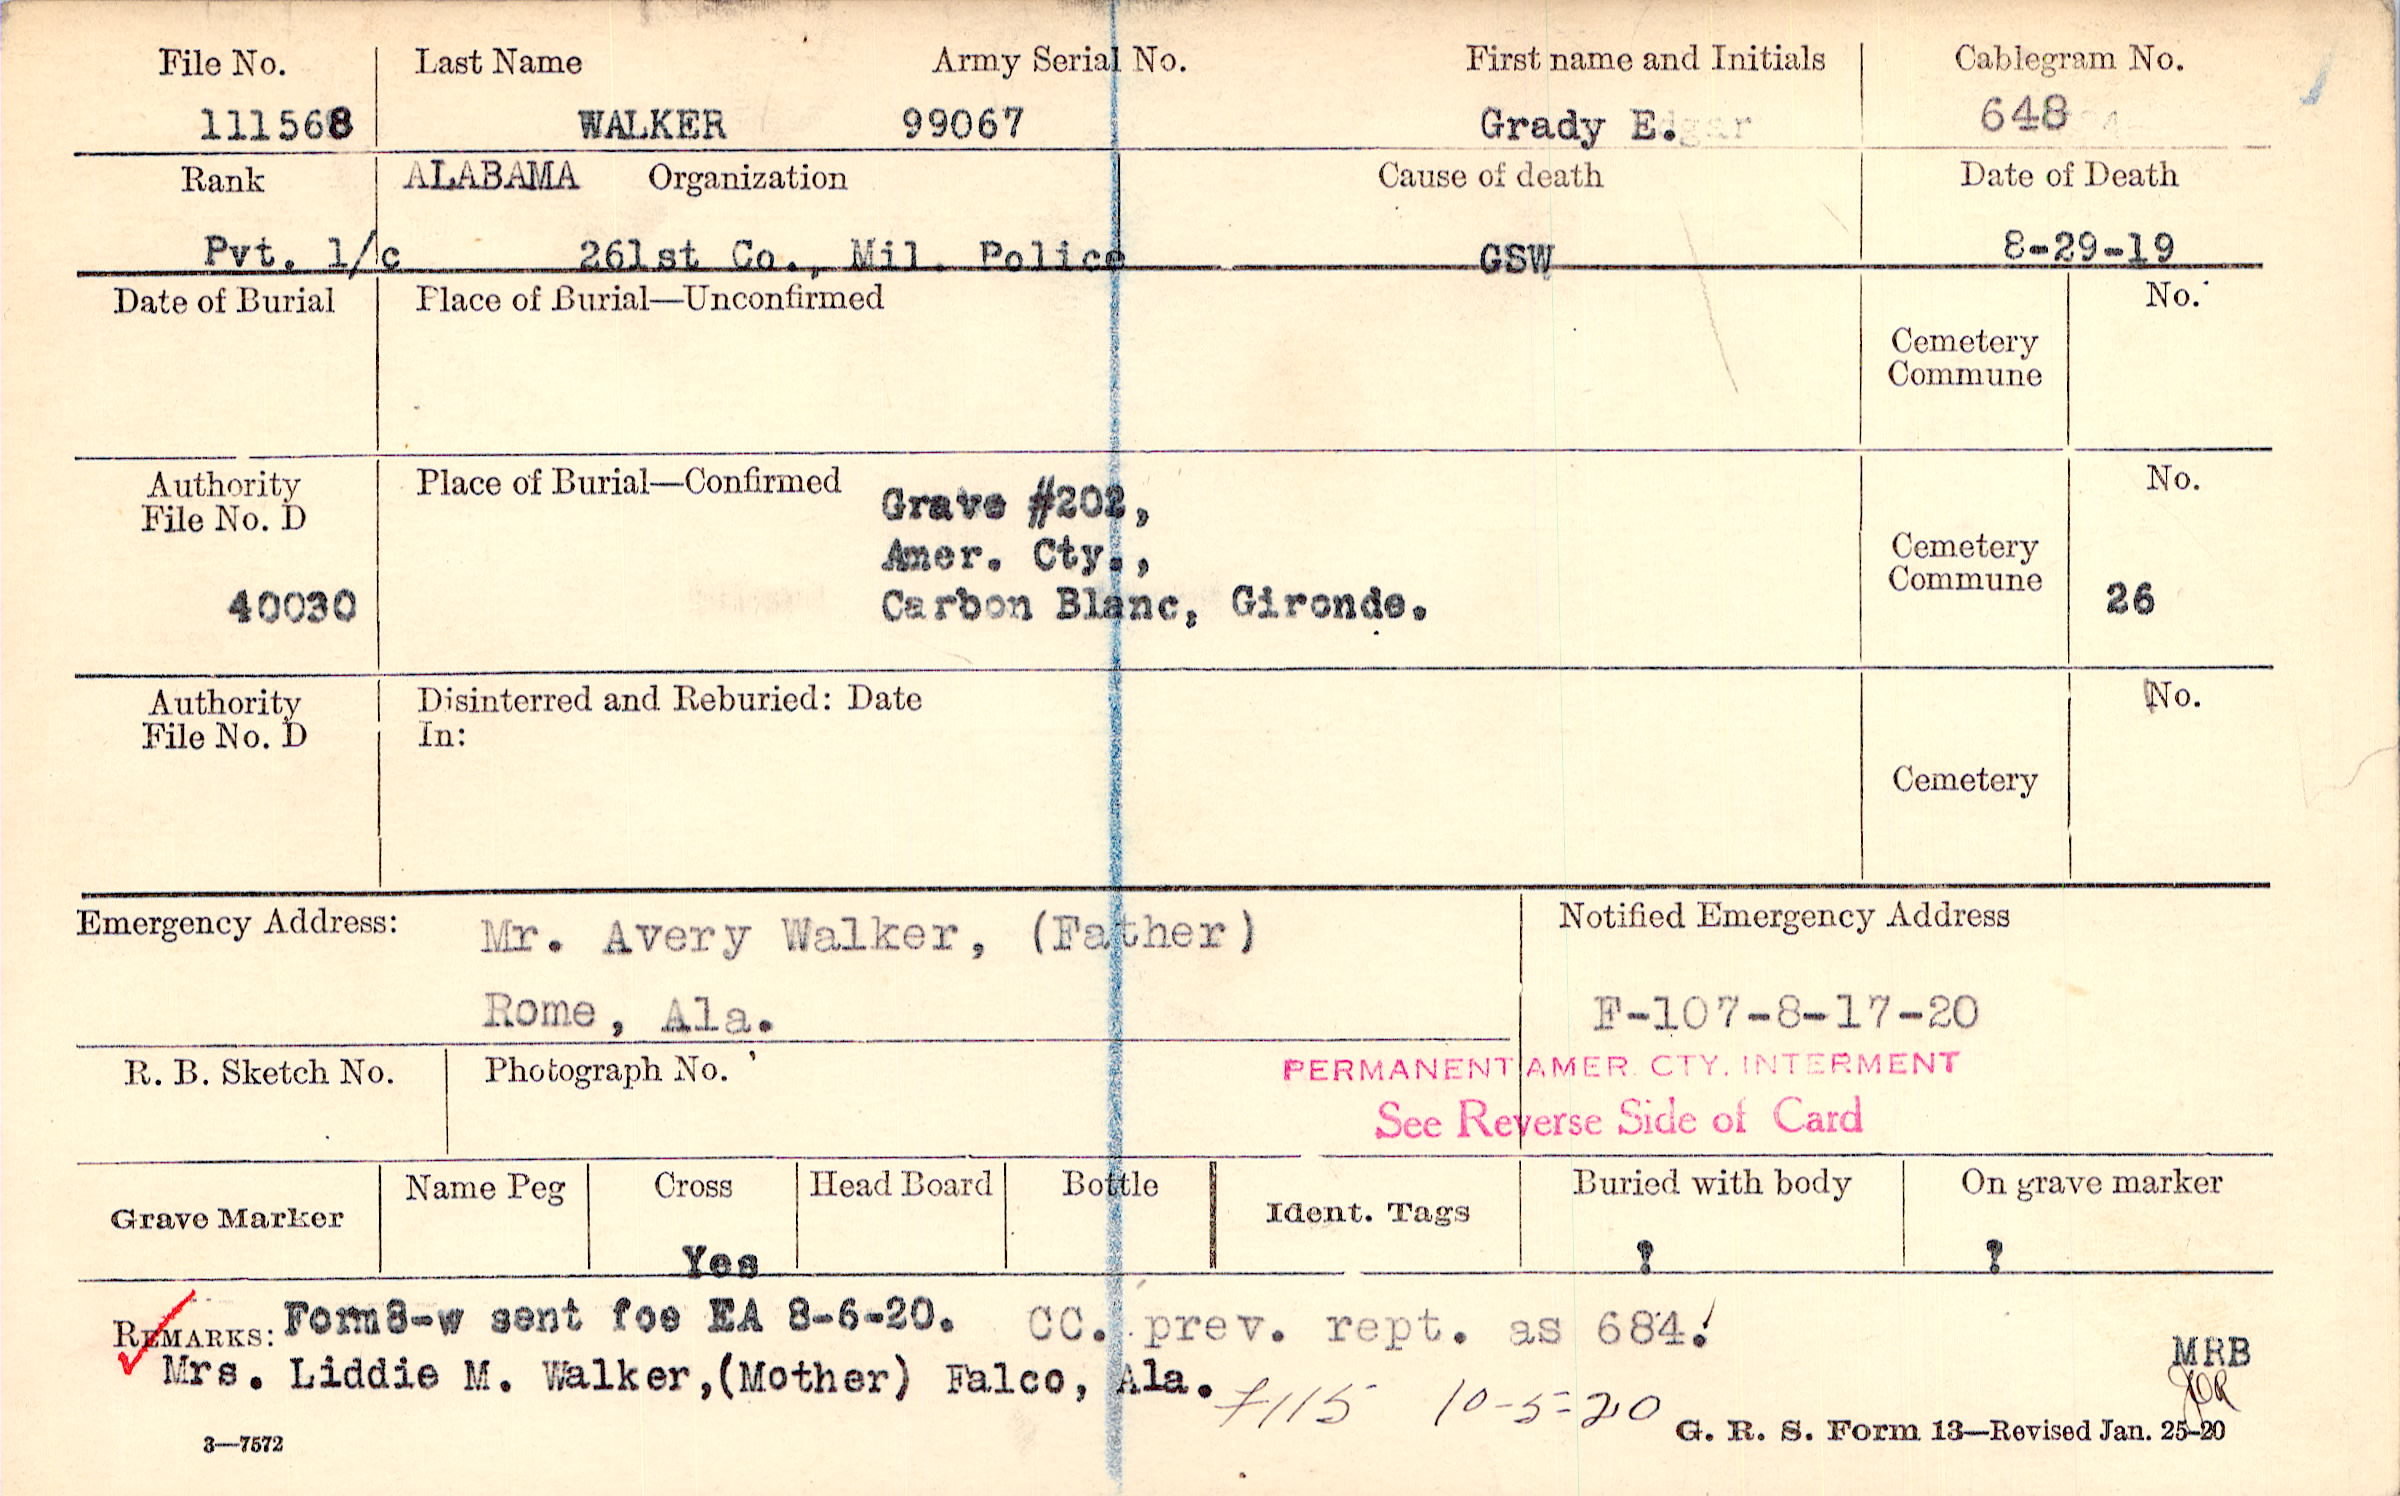 File No. Last Name Army Serial No. First name and Initials Cablegram No.
111568 WALKER 99067 Grady E. 648
Rank ALABAMA Organization Cause of death Date of Death
Pvt. 1/c 261st Co., Mil. Police GSW 8-29-19
Date of Burial Place of Burial—Unconfirmed No.
Cemetery
Commune
Authority Place of Burial—Confirmed No.
File No. D Grave #202,
Amer. Cty., Cemetery
40030 Carbon Blanc, Gironde. Commune 26
Authority Disinterred and Reburied: Date No.
File No. D In:
Cemetery
Emergency Address: Mr. Avery Walker, (Father) Notified Emergency Address
Rome, Ala. F-107-8-17-20
R. B. Sketch No. Photograph No. PERMANENT AMER. CTY. INTERMENT
See Reverse Side of Card
Grave Marker Name Peg Cross Head Board Bottle Ident. Tags Buried with body On grave marker
Yes ? ?
REMARKS: Form8-w sent foe EA 8-6-20. CC. prev. rept. as 684.
MRB
Mrs. Liddie M. Walker,(Mother) Falco, Ala. 7115 10-5-20
3—7572 G. R. S. Form 13—Revised Jan. 25-20